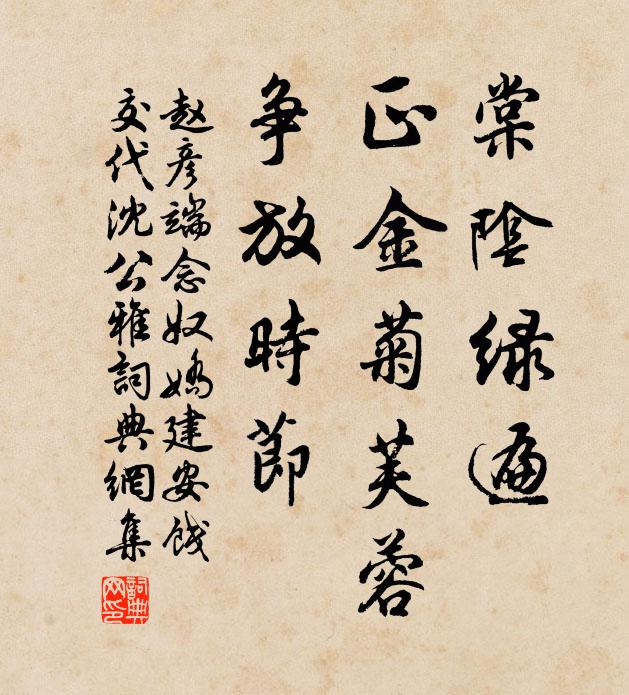 棠陰緑遍
正金菊芙蓉
争放時節
赵彦端念奴嬌建安餞
交代沈公雅詞典網集
詞典網印